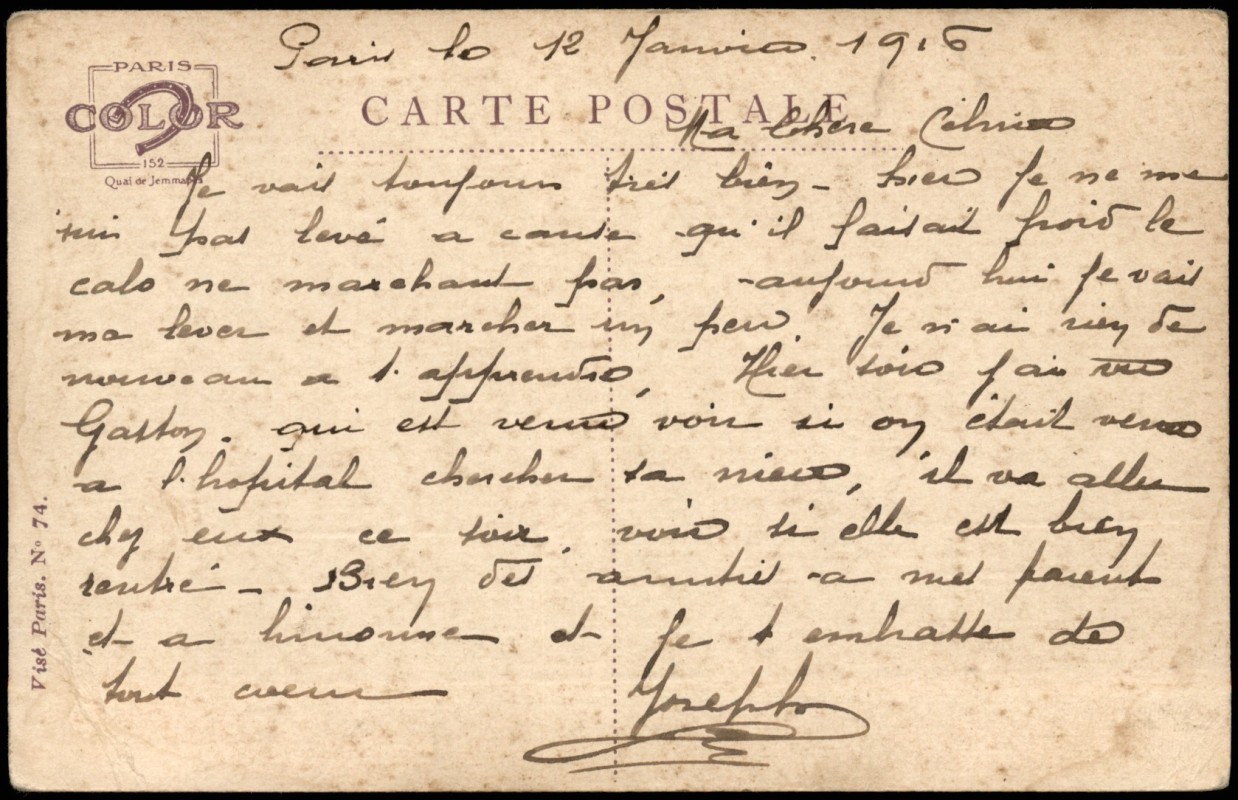 Paris le 12 Janvier 1916
PARIS
COLOR
152
Quai de Jemmapes
CARTE POSTALE
Ma chere
Je vais toujours très bien - hier je ne me
suis pas levé a cause qu'il faisait froid le
calo ne marchant pas, aujourd hui je vais
me lever et marcher un peu. Je n'ai rien de
nouveau a t'apprendre, Hier soir j'ai vu
Gaston. qui est venu voir si on était venu
a l'hopital chercher sa niece, il va aller
chez eux ce soir voir si elle est bien
rentré - Bien des amitiés a mes parent
et a et je t embrasse de
tout coeur Joseph
Visé Paris. Nº 74.